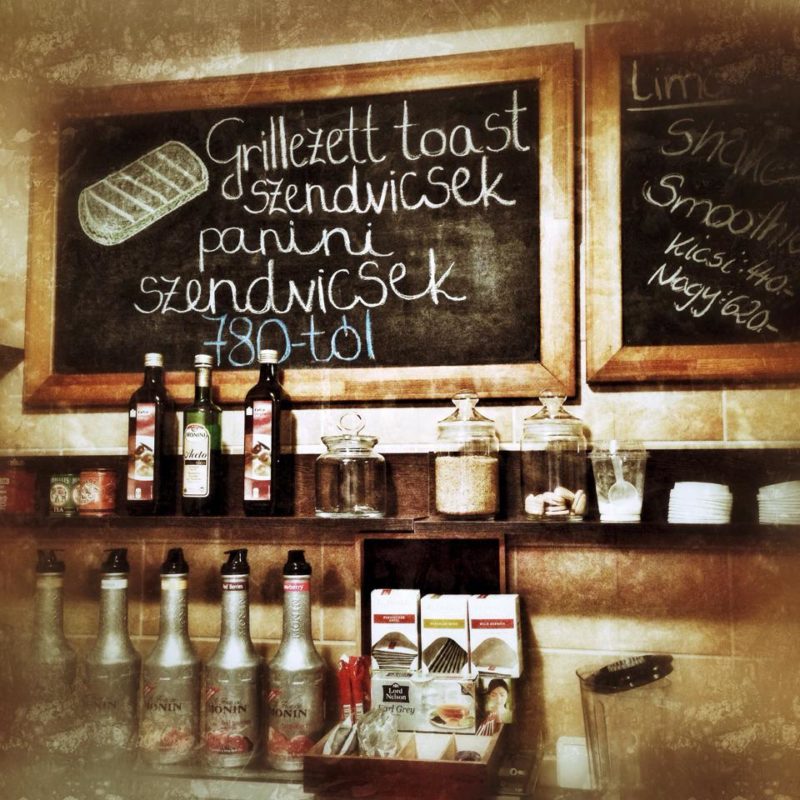 Grillezett toast
szendvicsek
panini
szendvicsek
780-tól
Shake
Smoothie
Kicsi: 440.-
Nagy: 620.-
MONINI
Aceto
TEA
Berries
MONIN
MONIN
MONIN
Lord
Nelson
Earl Grey